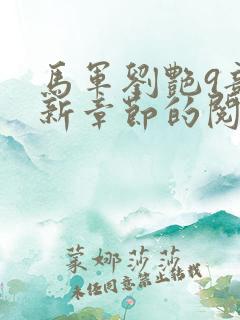 馬軍劉艷9章
新章節的閱
葉娜莎莎
未经同意禁止转载